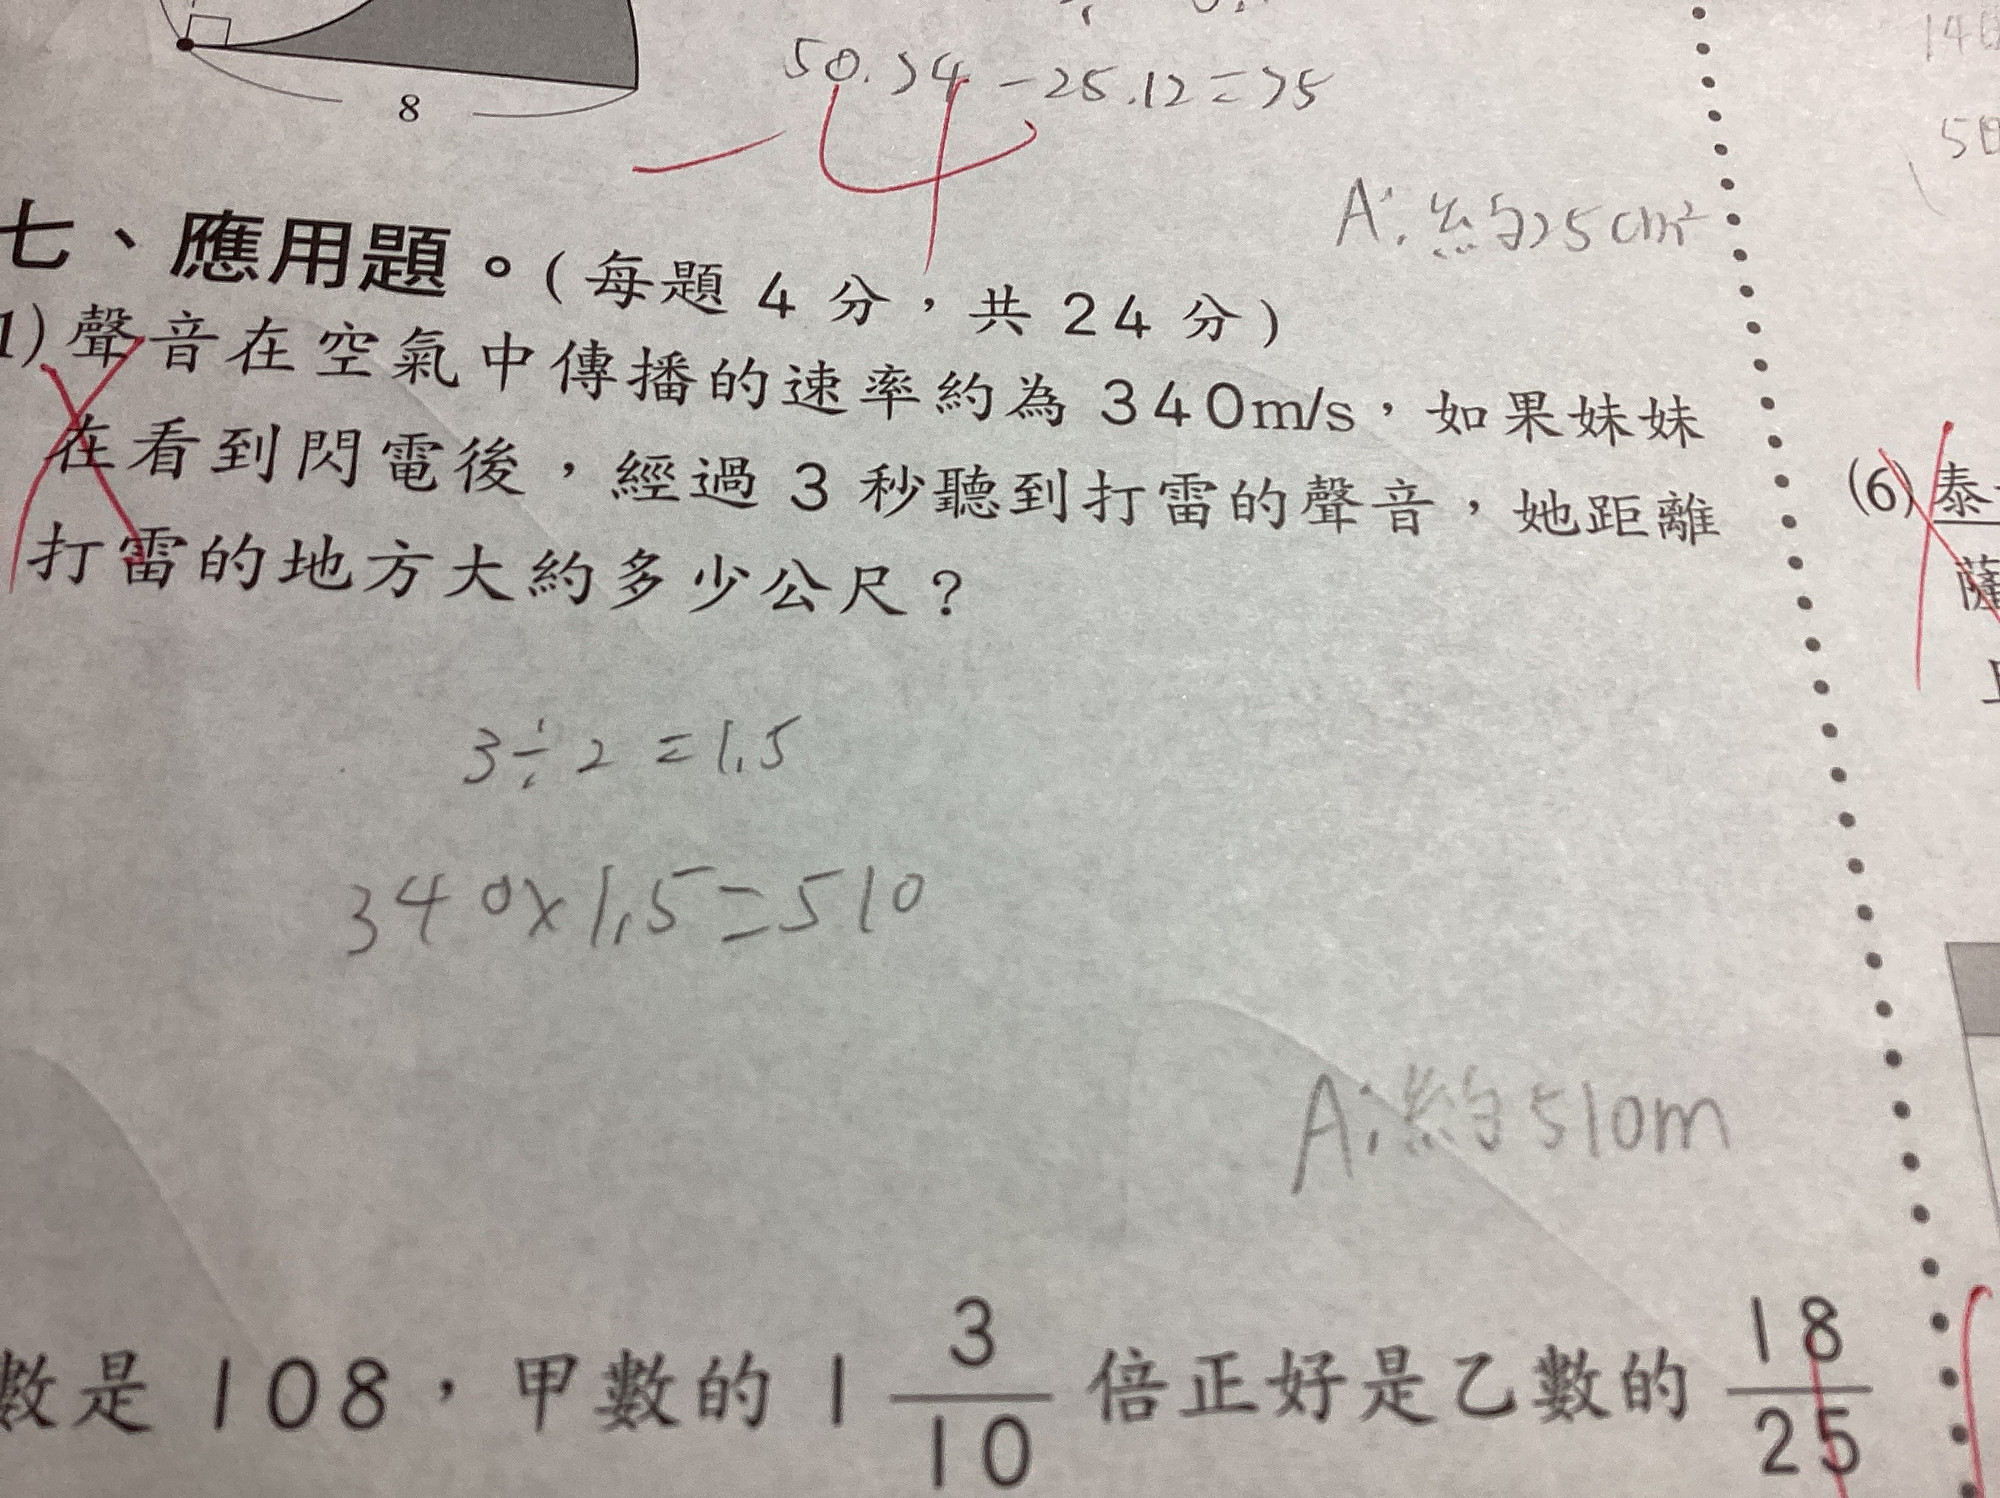 8
50.24-25.12=25
A:約25cm²
七、應用題。(每題 4 分,共 24 分)
1)聲音在空氣中傳播的速率約為 340m/s,如果妹妹
在看到閃電後,經過 3 秒聽到打雷的聲音,她距離
打雷的地方大約多少公尺?
3÷2=1.5
340×1.5=510
A:約510m
數是 108,甲數的 1 3/10 倍正好是乙數的 18/25
(6)泰
薩